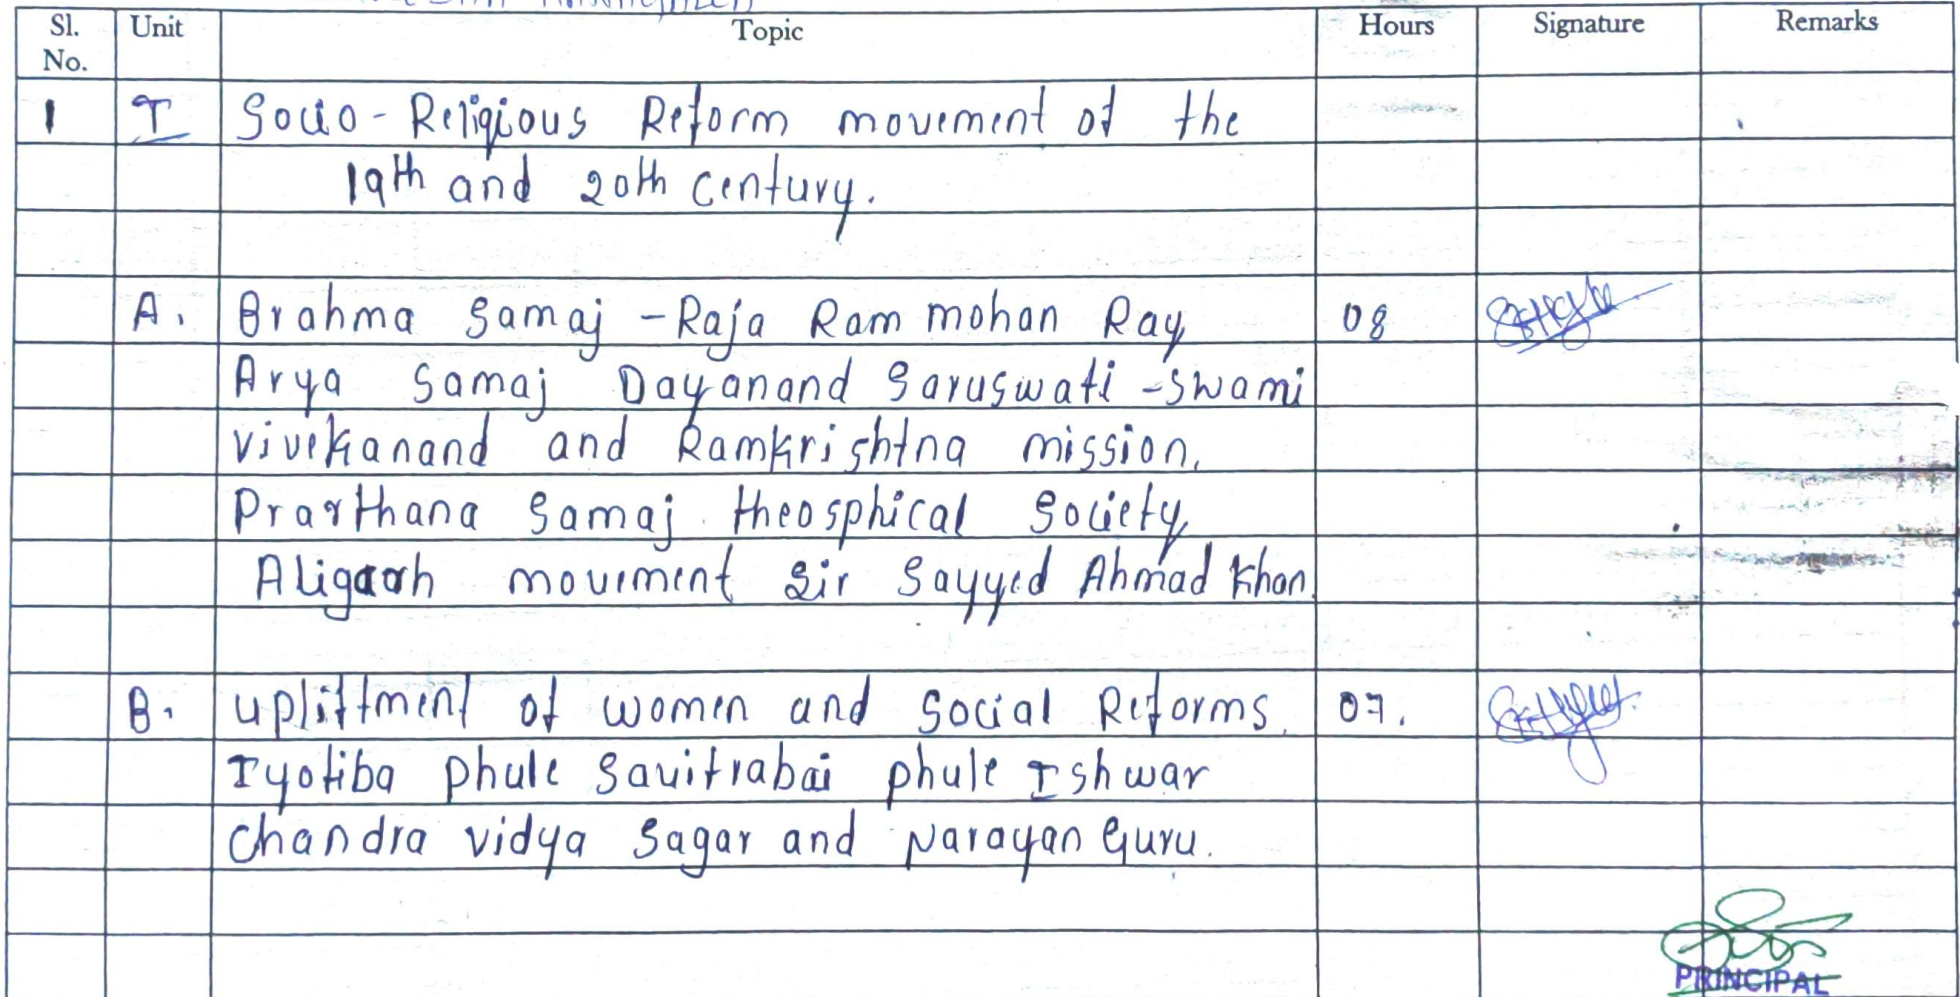 Sl. No. Unit Topic Hours Signature Remarks
1 I Socio-Religious Reform movement of the
19th and 20th century.
A. Brahma samaj - Raja Ram mohan Ray 08
Arya samaj Dayanand saruswati - swami
vivekanand and Ramkrishtna mission,
Prarthana samaj. theosphical society,
Aligarh movement sir sayyed Ahmad Khan.
B. upliftment of women and social Reforms. 07.
Iyotiba phule savitrabai phule Ishwar
chandra vidya sagar and Narayan Guru.
PRINCIPAL